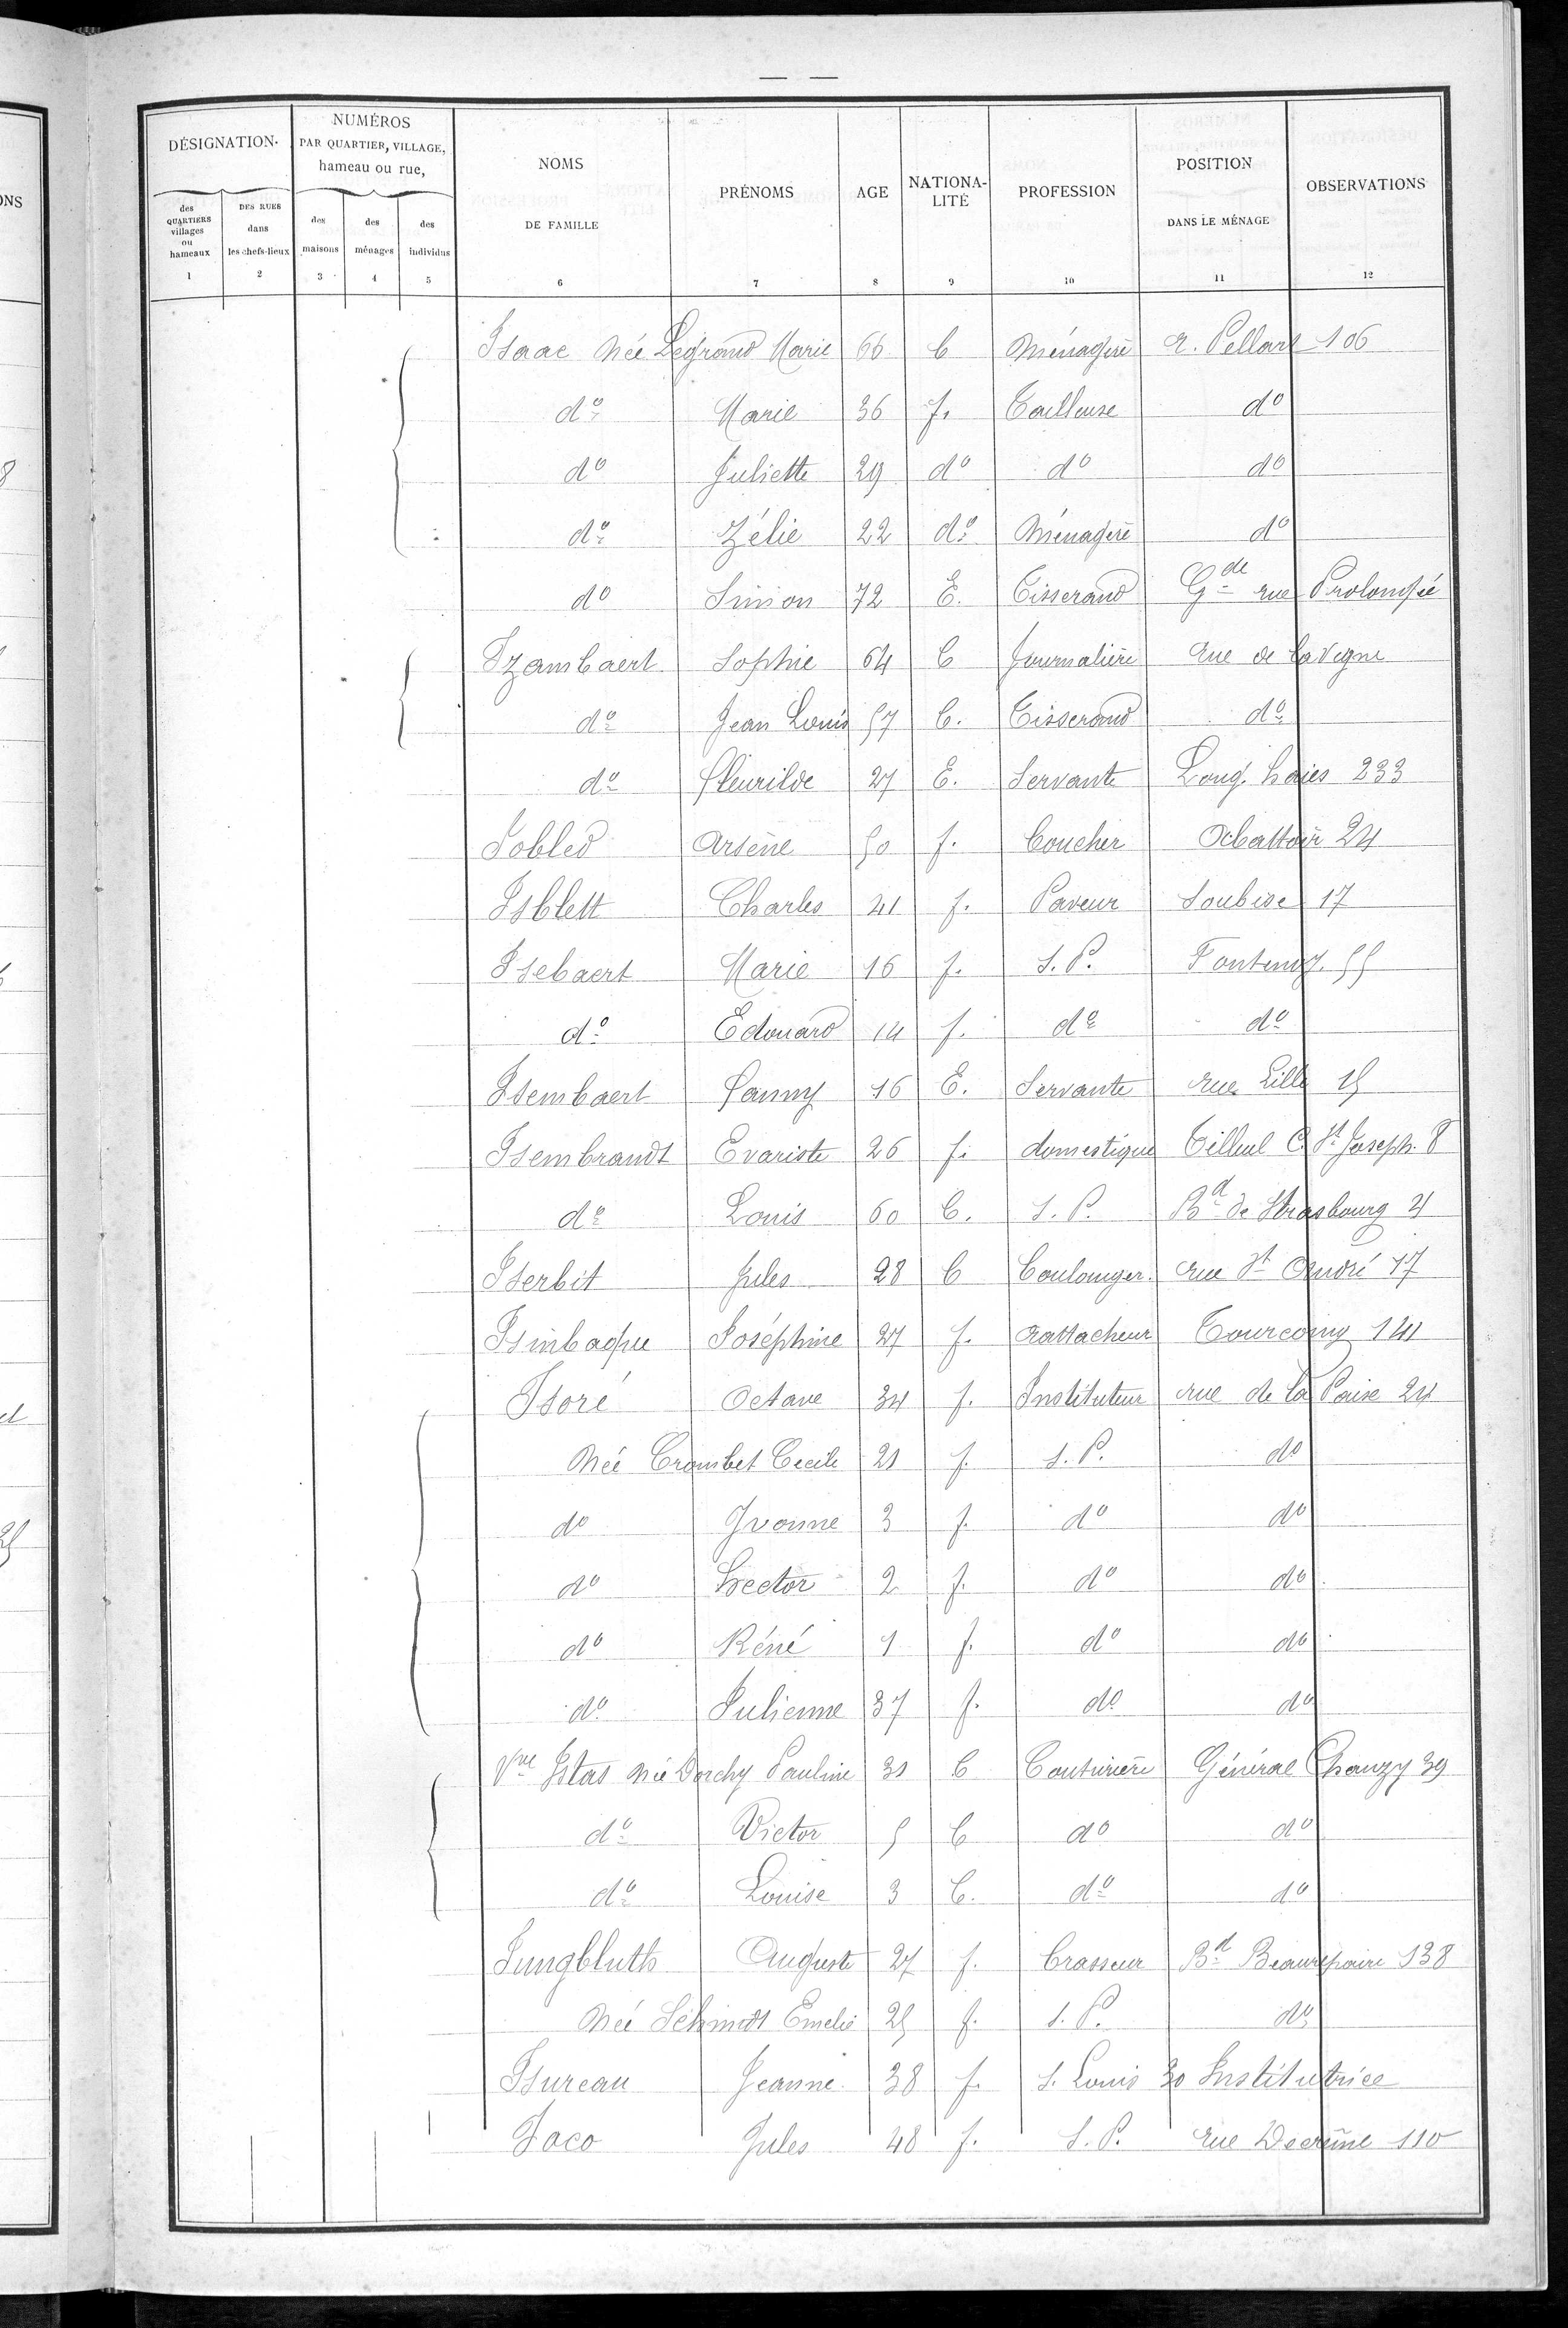 — —
DÉSIGNATION.
NUMÉROS
PAR QUARTIER, VILLAGE,
hameau ou rue,
NOMS
DE FAMILLE
PRÉNOMS
AGE
NATIONA-
LITÉ
PROFESSION
POSITION
DANS LE MÉNAGE
OBSERVATIONS
des
QUARTIERS
villages
ou
hameaux
DES RUES
dans
les chefs-lieux
des
maisons
des
ménages
des
individus
1 2 3 4 5 6 7 8 9 10 11 12
Isaac née Legrand Marie 66 B Ménagère r. Pellart 106
do Marie 36 f. Tailleuse do
do Juliette 29 do do do
do Zélie 22 do Ménagère do
do Simon 72 E. Tisserand Gde rue Prolongée
Izambaert Sophie 64 B Journalière rue de la Vigne
do Jean Louis 57 B. Tisserand do
do Fleurilde 27 E. Servante Long. haies 233
Isobled Arsène 50 f. boucher Abattoir 24
Isblett Charles 41 f. Paveur Soubise 17
Isebaert Marie 16 f. S.P. Fontenoy 55
do Edouard 14 f. do do
Isembaert Fanny 16 E. Servante rue Lille 15
Isembrandt Evariste 26 f. domestique Tilleul C. St Joseph. 8
do Louis 60 B. S.P. Bd de Strasbourg 4
Iserbit Jules 28 B boulanger. rue St André 17
Isinbaque Joséphine 27 f. rattacheur Tourcoing 141
Isoré Octave 34 f. Instituteur rue de la Paix 24
née Crombet Cecile 21 f. S.P. do
do Yvonne 3 f. do do
do Hector 2 f. do do
do Réné 1 f. do do
do Julienne 37 f. do do
Vve Istas née Dorchy Pauline 31 B Couturière Général Chanzy 39
do Victor 5 B do do
do Louise 3 B. do do
Jungbluth Auguste 27 f. brasseur Bd Beaurepaire 138
née Schmidt Emelie 25 f. S.P. do
Isureau Jeanne 38 f. S. Louis 30 Institutrice
Jaco Jules 48 f. S.P. rue Decrême 110